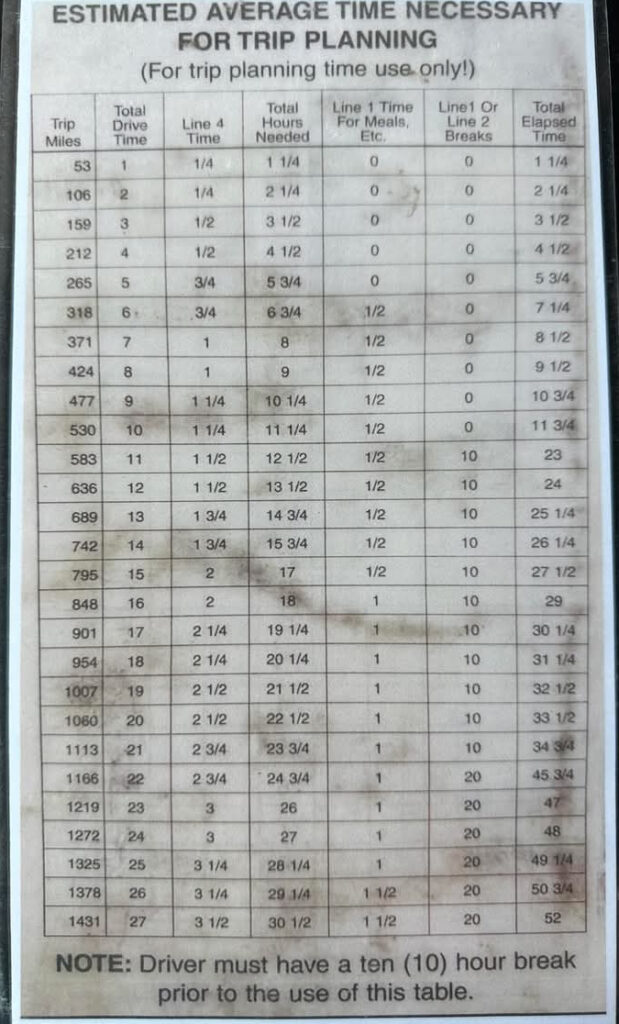 ESTIMATED AVERAGE TIME NECESSARY
FOR TRIP PLANNING
(For trip planning time use only!)
Trip Miles | Total Drive Time | Line 4 Time | Total Hours Needed | Line 1 Time For Meals, Etc. | Line1 Or Line 2 Breaks | Total Elapsed Time
53 1 1/4 1 1/4 0 0 1 1/4
106 2 1/4 2 1/4 0 0 2 1/4
159 3 1/2 3 1/2 0 0 3 1/2
212 4 1/2 4 1/2 0 0 4 1/2
265 5 3/4 5 3/4 0 0 5 3/4
318 6 3/4 6 3/4 1/2 0 7 1/4
371 7 1 8 1/2 0 8 1/2
424 8 1 9 1/2 0 9 1/2
477 9 1 1/4 10 1/4 1/2 0 10 3/4
530 10 1 1/4 11 1/4 1/2 0 11 3/4
583 11 1 1/2 12 1/2 1/2 10 23
636 12 1 1/2 13 1/2 1/2 10 24
689 13 1 3/4 14 3/4 1/2 10 25 1/4
742 14 1 3/4 15 3/4 1/2 10 26 1/4
795 15 2 17 1/2 10 27 1/2
848 16 2 18 1 10 29
901 17 2 1/4 19 1/4 1 10 30 1/4
954 18 2 1/4 20 1/4 1 10 31 1/4
1007 19 2 1/2 21 1/2 1 10 32 1/2
1060 20 2 1/2 22 1/2 1 10 33 1/2
1113 21 2 3/4 23 3/4 1 10 34 3/4
1166 22 2 3/4 24 3/4 1 20 45 3/4
1219 23 3 26 1 20 47
1272 24 3 27 1 20 48
1325 25 3 1/4 28 1/4 1 20 49 1/4
1378 26 3 1/4 29 1/4 1 1/2 20 50 3/4
1431 27 3 1/2 30 1/2 1 1/2 20 52
NOTE: Driver must have a ten (10) hour break
prior to the use of this table.